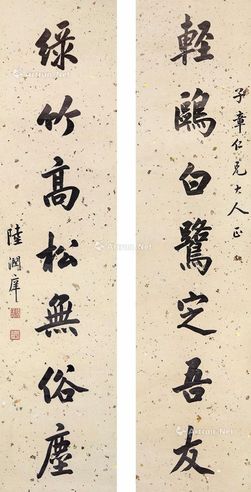 子章仁兄大人正
輕鷗白鷺定吾友
綠竹高松無俗塵
陸潤庠